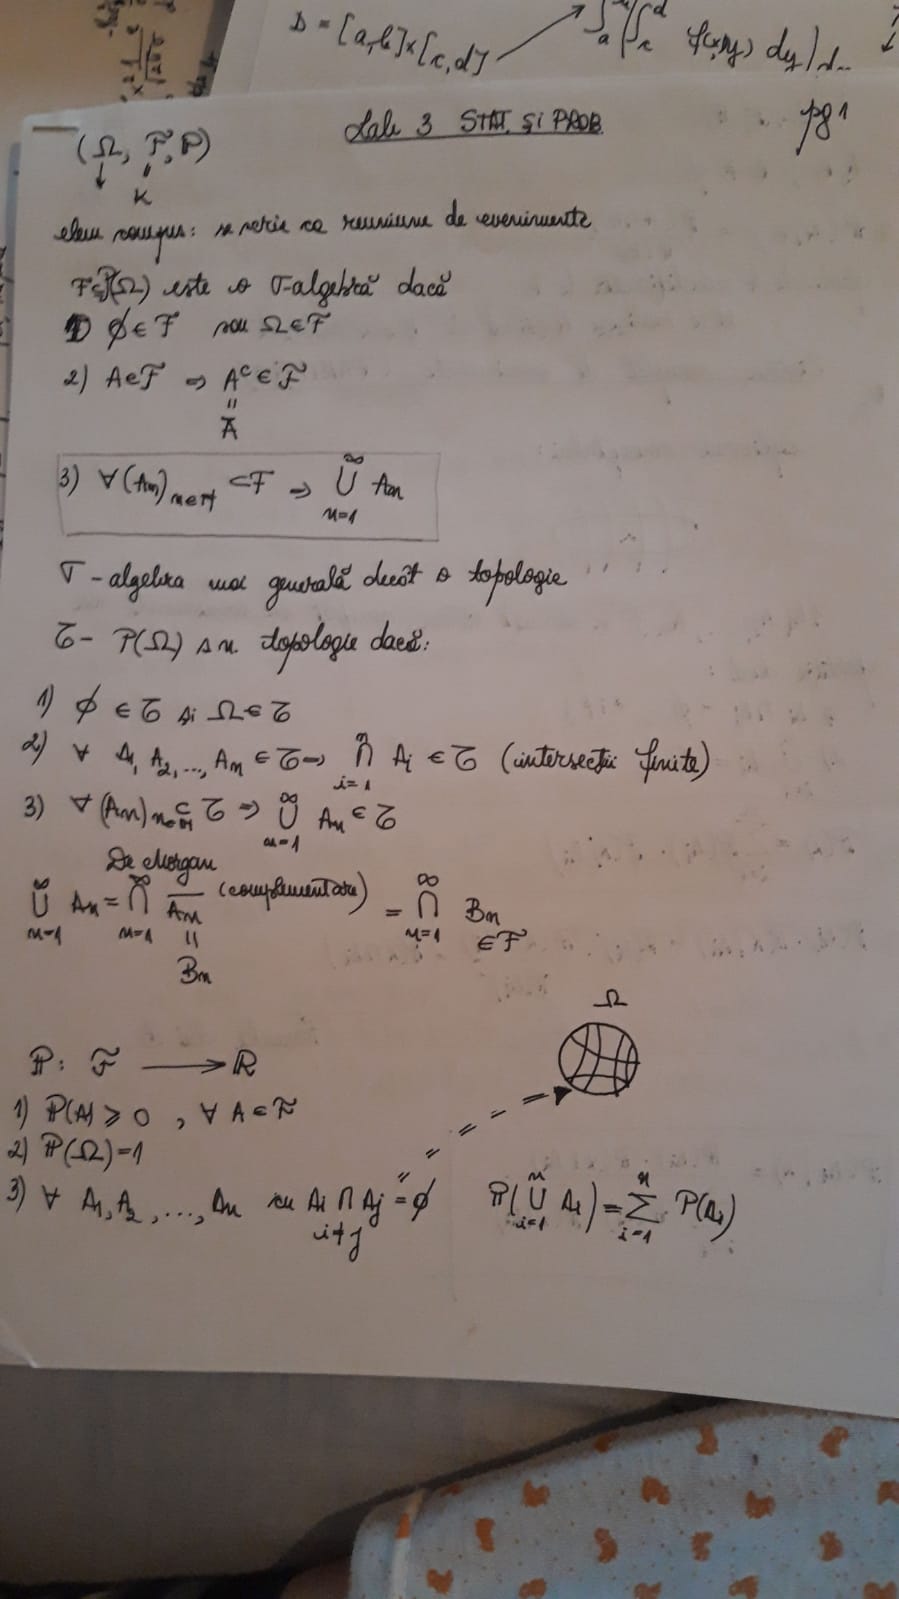 D = [a,b]×[c,d] ∫a (∫c^d f(x,y) dy) d
Lab 3 STAT. ȘI PROB. pg 1
(Ω, F, P)
↓ "
K
elem compus: se scrie ca reuniune de evenimente
F⊆P(Ω) este o σ-algebră dacă
1) ∅∈F sau Ω∈F
2) A∈F ⇒ A^c∈F
"
Ā
3) ∀(An)n∈ℕ ⊂F ⇒ ∞∪n=1 An
σ-algebra mai generală decât o topologie
τ- P(Ω) s.n. topologie dacă:
1) ∅ ∈ τ și Ω∈ τ
2) ∀ A1, A2, ..., An ∈ τ ⇒ n∩i=1 Ai ∈ τ (intersecții finite)
3) ∀(An)n∈ℕ ⊂ τ ⇒ ∞∪n=1 An ∈ τ
De Morgan
∞∪n=1 An = ∞∩n=1 A̅n̅ (complementare) = ∞∩n=1 Bn ∈F
"
Bn
Ω
P: F ⟶ ℝ
1) P(A) ≥ 0 , ∀ A∈F
2) P(Ω)=1
3) ∀ A1, A2, ..., An cu Ai ∩ Aj = ∅ P(n∪i=1 Ai) = n∑i=1 P(Ai)
i≠j